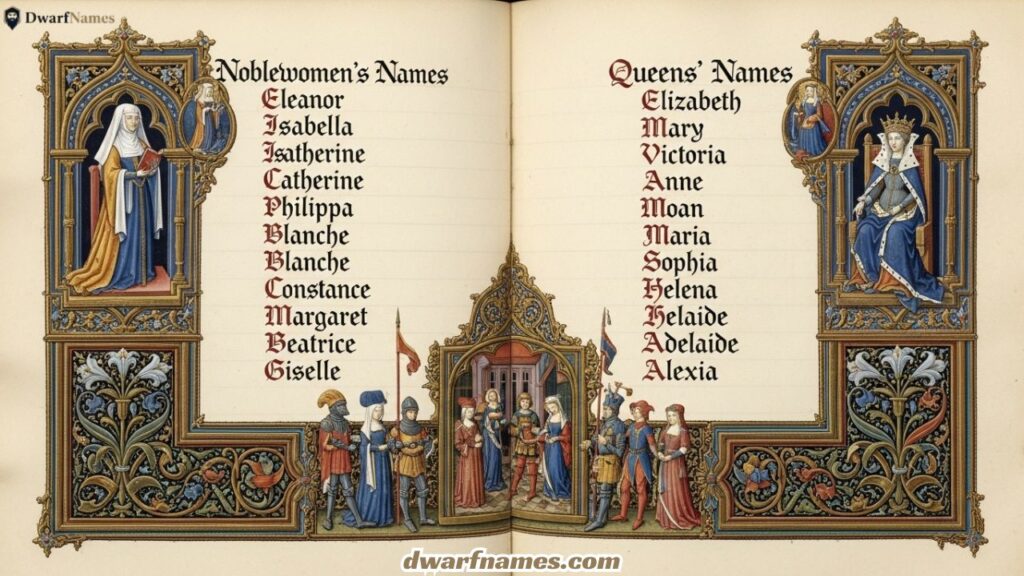 DwarfNames
Noblewomen's Names
Eleanor
Isabella
Isatherine
Catherine
Philippa
Blanche
Blanche
Constance
Margaret
Beatrice
Giselle
Queens' Names
Elizabeth
Mary
Victoria
Anne
Moan
Maria
Sophia
Helena
Helaide
Adelaide
Alexia
dwarfnames.com